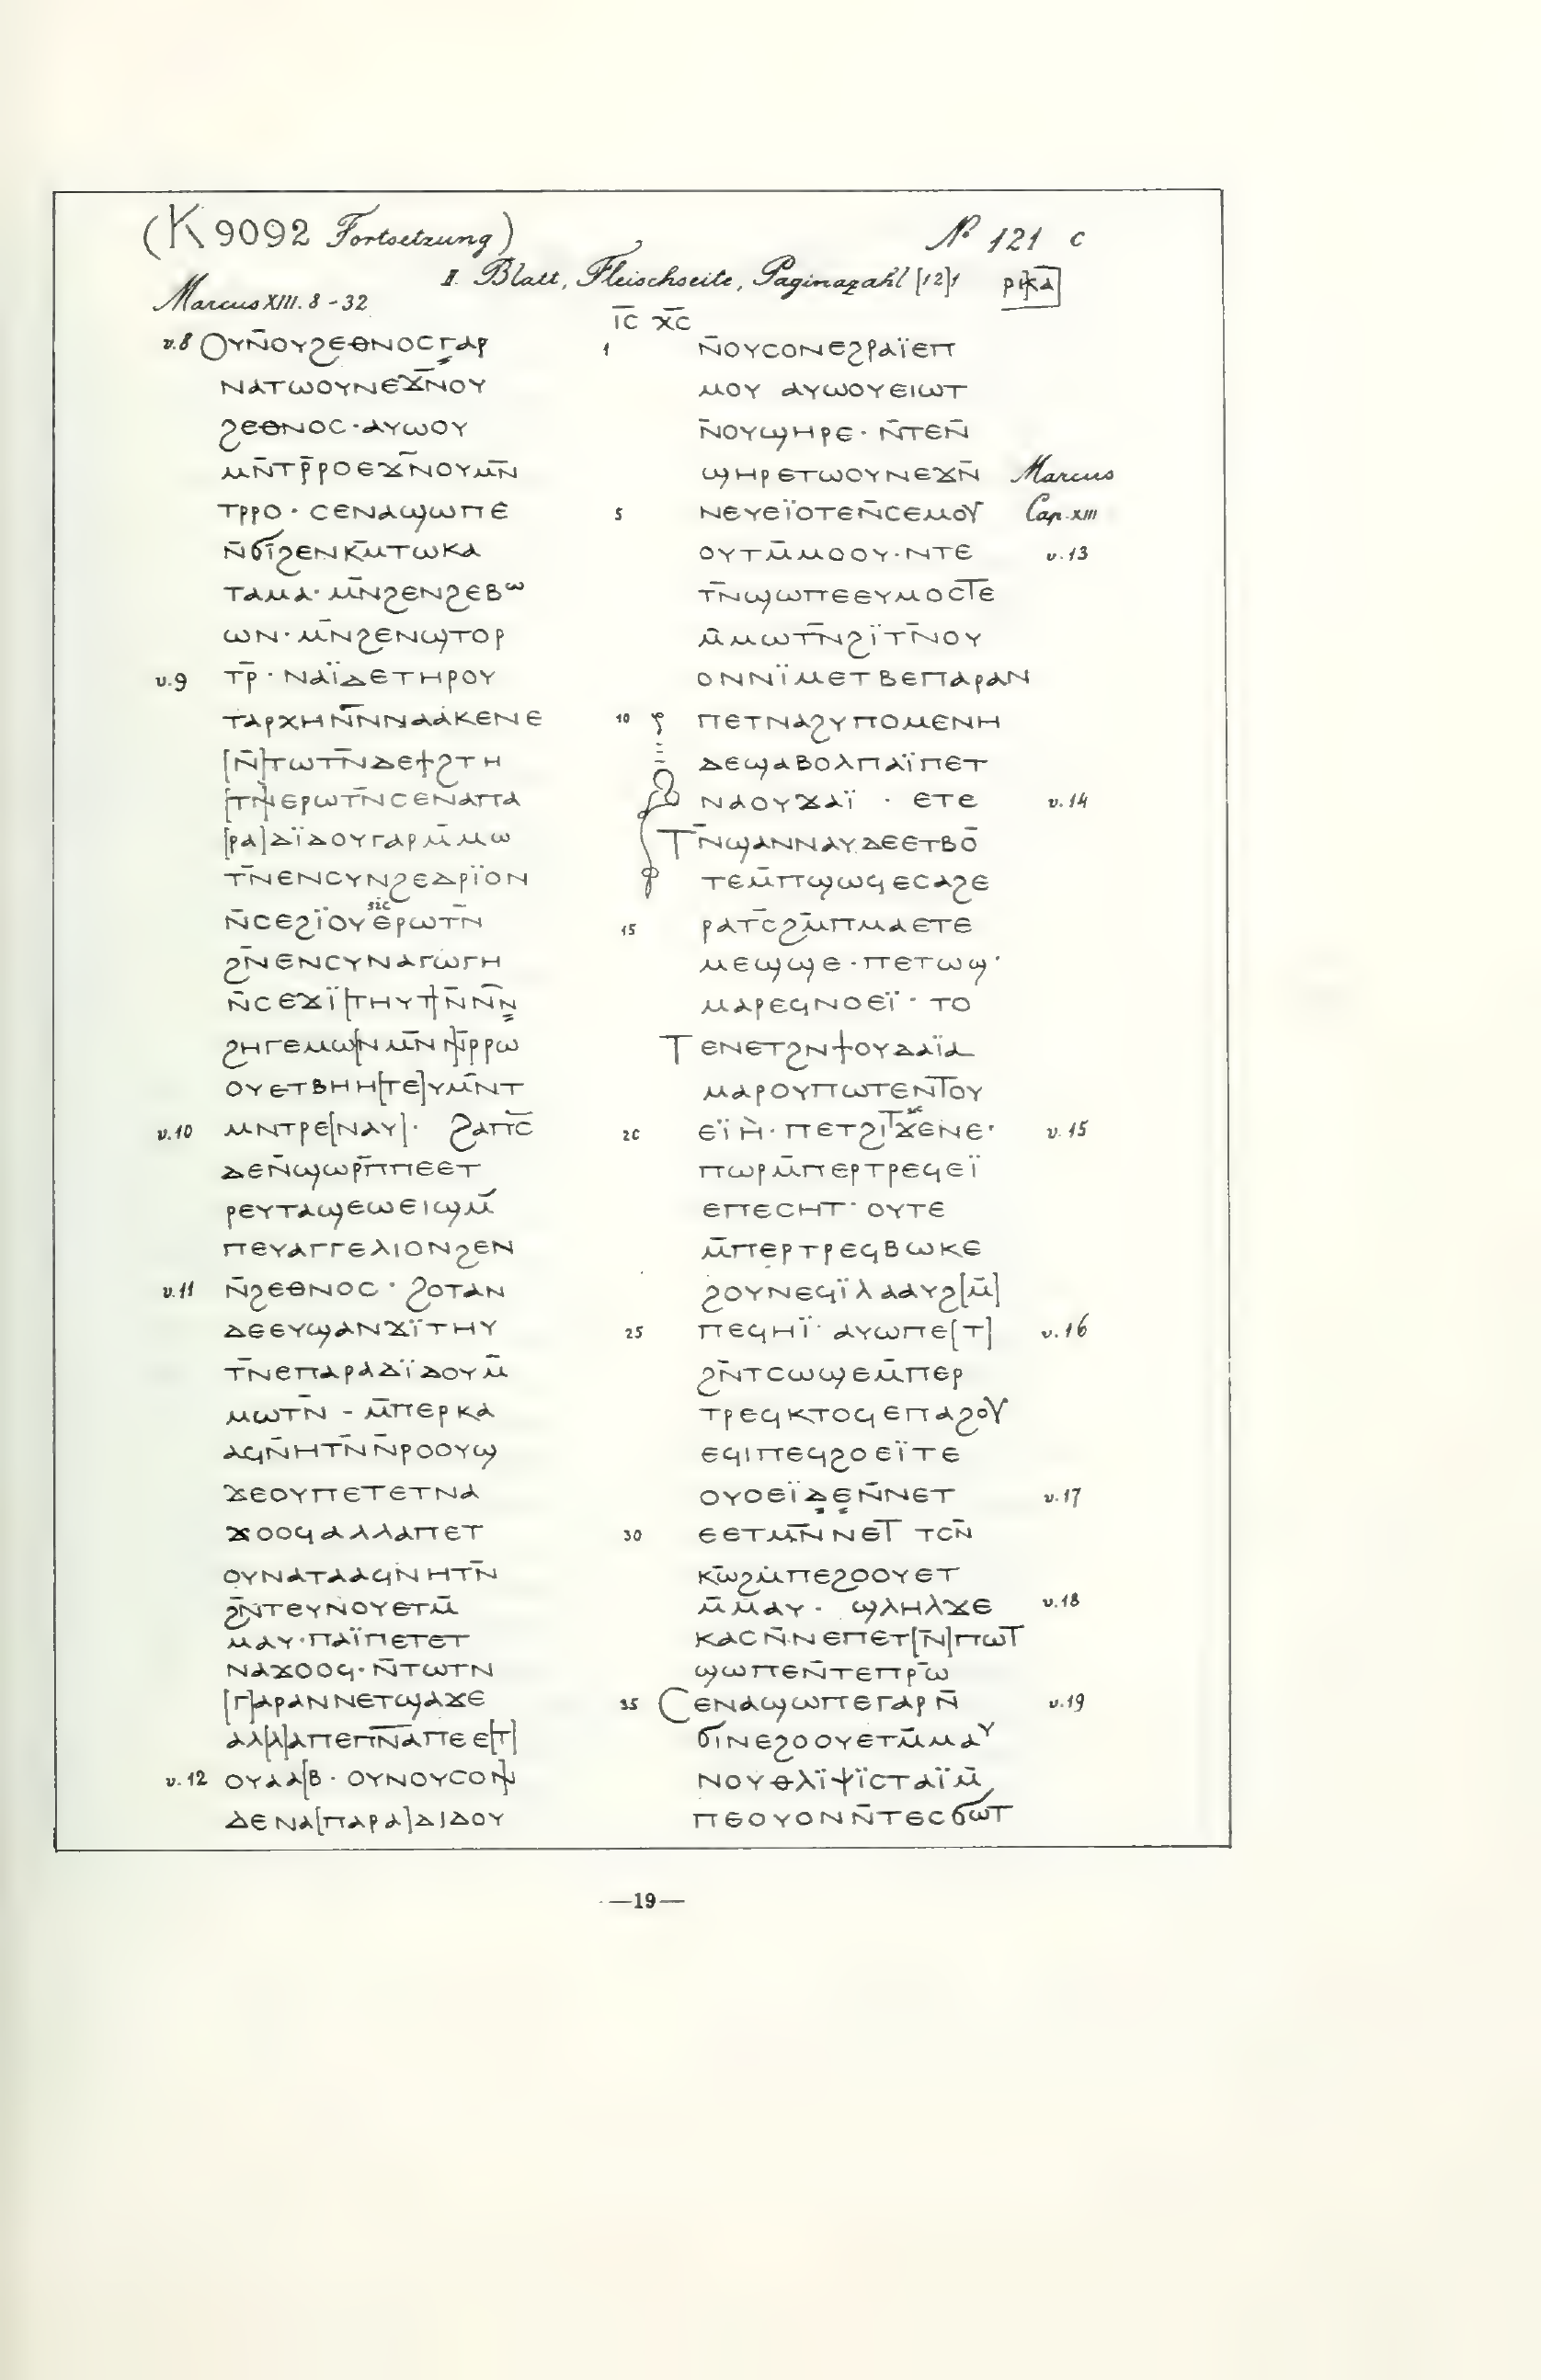 (K 9092 Fortsetzung) № 121 c
II. Blatt, Fleischseite, Paginazahl [12]1 ⲣ[ⲕ̅ⲁ̅]
Marcus XIII. 8 - 32
ⲓ̅ⲥ ⲭ̅ⲥ
v.8 Ⲟⲩⲛ̄ⲟⲩϩⲉⲑⲛⲟⲥⲅ̣ⲁⲣ
ⲛⲁⲧⲱⲟⲩⲛⲉϫ̄ⲛ̄ⲟⲩ
ϩⲉⲑⲛⲟⲥ·ⲁⲩⲱⲟⲩ
ⲙⲛ̄ⲧⲣ̄ⲣⲟⲉϫⲛ̄ⲟⲩⲙⲛ̄
ⲧⲣⲣⲟ· ⲥⲉⲛⲁϣⲱⲡⲉ
ⲛ̄ϭⲓ̄ϩⲉⲛⲕⲙ̄ⲧⲱⲕⲁ
ⲧⲁⲙⲁ· ⲙⲛ̄ϩⲉⲛϩⲉⲃⲱ
ⲱⲛ·ⲙⲛ̄ϩⲉⲛϣⲧⲟⲣ
v.9 ⲧⲣ̄·ⲛⲁⲓ̈ⲇⲉⲧⲏⲣⲟⲩ
ⲧⲁⲣⲭⲏⲛ̄ⲛ̄ⲛⲁⲁⲕⲉⲛⲉ
[ⲛ̄]ⲧⲱⲧⲛ̄ⲇⲉϯϩⲧⲏ
[ⲧⲛ]ⲉⲣⲱⲧⲛ̄ⲥⲉⲛⲁⲡⲁ
[ⲣⲁ]ⲇⲓ̈ⲇⲟⲩⲅⲁⲣⲙ̄ⲙⲱ
ⲧⲛ̄ⲉⲛⲥⲩⲛϩⲉⲇⲣⲓ̈ⲟⲛ
sic
ⲛ̄ⲥⲉϩⲓ̈ⲟⲩⲉⲣⲱⲧⲛ̄
ϩⲛ̄ⲉⲛⲥⲩⲛⲁⲅⲱⲅⲏ
ⲛ̄ⲥⲉϫⲓ̈[ⲧⲏⲩⲧ]ⲛ̄ⲛ̄ⲛ̣
ϩⲏⲅⲉⲙⲱ[ⲛⲙⲛ̄ⲛ]ⲣ̄ⲣⲱ
ⲟⲩⲉⲧⲃⲏⲏ[ⲧⲉ]ⲩⲙⲛ̄ⲧ
v.10 ⲙⲛⲧⲣⲉ[ⲛⲁⲩ]· ϩⲁⲡⲥ̄
ⲇⲉⲛ̄ϣⲱⲣ̄ⲡ̄ⲡⲉⲉⲧ
ⲣⲉⲩⲧⲁϣⲉⲱⲉⲓϣⲙ̄
ⲡⲉⲩⲁⲅⲅⲉⲗⲓⲟⲛϩⲉⲛ
v.11 ⲛ̄ϩⲉⲑⲛⲟⲥ· ϩⲟⲧⲁⲛ
ⲇⲉⲉⲩϣⲁⲛϫⲓ̈ⲧⲏⲩ
ⲧⲛ̄ⲉⲡⲁⲣⲁⲇⲓ̈ⲇⲟⲩⲙ̄
ⲙⲱⲧⲛ̄ - ⲙ̄ⲡⲉⲣⲕⲁ
ⲁϥⲛ̄ⲏⲧⲛ̄ⲛ̄ⲣⲟⲟⲩϣ
ϫⲉⲟⲩⲡⲉⲧⲉⲧⲛⲁ
ϫⲟⲟϥⲁⲗⲗⲁⲡⲉⲧ
ⲟⲩⲛⲁⲧⲁⲁϥⲛⲏⲧⲛ̄
ϩⲛ̄ⲧⲉⲩⲛⲟⲩⲉⲧⲙ̄
ⲙⲁⲩ·ⲡⲁⲓ̈ⲡⲉⲧⲉⲧ
ⲛⲁϫⲟⲟϥ·ⲛ̄ⲧⲱⲧⲛ
[ⲅ]ⲁⲣⲁⲛⲛⲉⲧϣⲁϫⲉ
ⲁⲗ[ⲗ]ⲁⲡⲉⲡ̅ⲛ̅ⲁ̅ⲡⲉⲉ[ⲧ]
v.12 ⲟⲩⲁⲁ[ⲃ· ⲟⲩⲛⲟⲩⲥⲟⲛ]
ⲇⲉⲛⲁ[ⲡⲁⲣⲁ]ⲇⲓⲇⲟⲩ
1 ⲛ̄ⲟⲩⲥⲟⲛⲉϩⲣⲁⲓ̈ⲉⲡ
ⲙⲟⲩ ⲁⲩⲱⲟⲩⲉⲓⲱⲧ
ⲛ̄ⲟⲩϣⲏⲣⲉ· ⲛ̄ⲧⲉⲛ̄
ϣⲏⲣⲉⲧⲱⲟⲩⲛⲉϫⲛ̄ Marcus
5 ⲛⲉⲩⲉⲓ̈ⲟⲧⲉⲛ̄ⲥⲉⲙⲟⲩ Cap. XIII
ⲟⲩⲧⲙ̄ⲙⲟⲟⲩ·ⲛⲧⲉ v.13
ⲧⲛ̄ϣⲱⲡⲉⲉⲩⲙⲟⲥⲧⲉ
ⲙ̄ⲙⲱⲧⲛ̄ϩⲓ̈ⲧⲛ̄ⲟⲩ
ⲟⲛⲛⲓ̈ⲙⲉⲧⲃⲉⲡⲁⲣⲁⲛ
10 ⲡⲉⲧⲛⲁϩⲩⲡⲟⲙⲉⲛⲏ
ⲇⲉϣⲁⲃⲟⲗⲡⲁⲓ̈ⲡⲉⲧ
ⲛⲁⲟⲩϫⲁⲓ̈ · ⲉⲧⲉ v.14
Ⲧⲛ̄ϣⲁⲛⲛⲁⲩⲇⲉⲉⲧⲃⲟ̄
ⲧⲉⲙ̄ⲡϣⲱϥⲉⲥⲁϩⲉ
15 ⲣⲁⲧⲥ̄ϩⲙ̄ⲡⲙⲁⲉⲧⲉ
ⲙⲉϣϣⲉ·ⲡⲉⲧⲱϣ·
ⲙⲁⲣⲉϥⲛⲟⲉⲓ̈· ⲧⲟ
Ⲧⲉⲛⲉⲧϩⲛϯⲟⲩⲇⲁⲓ̈ⲁ
ⲙⲁⲣⲟⲩⲡⲱⲧⲉⲛⲧⲟⲩ
sic
20 ⲉⲓ̈ⲏ̀·ⲡⲉⲧϩⲓⲧϫⲉⲛⲉ· v.15
ⲡⲱⲣⲙ̄ⲡⲉⲣⲧⲣⲉϥⲉⲓ̈
ⲉⲡⲉⲥⲏⲧ· ⲟⲩⲧⲉ
ⲙ̄ⲡⲉⲣⲧⲣⲉϥⲃⲱⲕⲉ
ϩⲟⲩⲛⲉϥⲓ̈ⲗⲁⲁⲩϩ[ⲙ̄]
25 ⲡⲉϥⲏⲓ̈· ⲁⲩⲱⲡⲉ[ⲧ] v.16
ϩⲛ̄ⲧⲥⲱϣⲉⲙ̄ⲡⲉⲣ
ⲧⲣⲉϥⲕⲧⲟϥⲉⲡⲁϩⲟⲩ
ⲉϥⲓⲡⲉϥϩⲟⲉⲓ̈ⲧⲉ
ⲟⲩⲟⲉⲓ̈ⲇ̣ⲉ̣ⲛ̄ⲛⲉⲧ v.17
30 ⲉⲉⲧⲙⲛ̄ⲛⲉⲧ ⲧⲥⲛ̄
ⲕⲱ̄ϩⲙ̄ⲡⲉϩⲟⲟⲩⲉⲧ
ⲙ̄ⲙⲁⲩ· ϣⲗⲏⲗϫⲉ v.18
ⲕⲁⲥⲛ̄ⲛⲉⲡⲉⲧ[ⲛ̄]ⲡⲱⲧ
ϣⲱⲡⲉⲛ̄ⲧⲉⲡⲣ̄ⲱ
35 Ⲥⲉⲛⲁϣⲱⲡⲉⲅⲁⲣⲛ̄ v.19
ϭⲓⲛⲉϩⲟⲟⲩⲉⲧⲙ̄ⲙⲁⲩ
ⲛⲟⲩⲑⲗⲓ̈ⲯⲓ̈ⲥⲧⲁⲓ̈ⲙ̄
ⲡⲉⲟⲩⲟⲛⲛ̄ⲧⲉⲥϭⲱⲧ
—19—